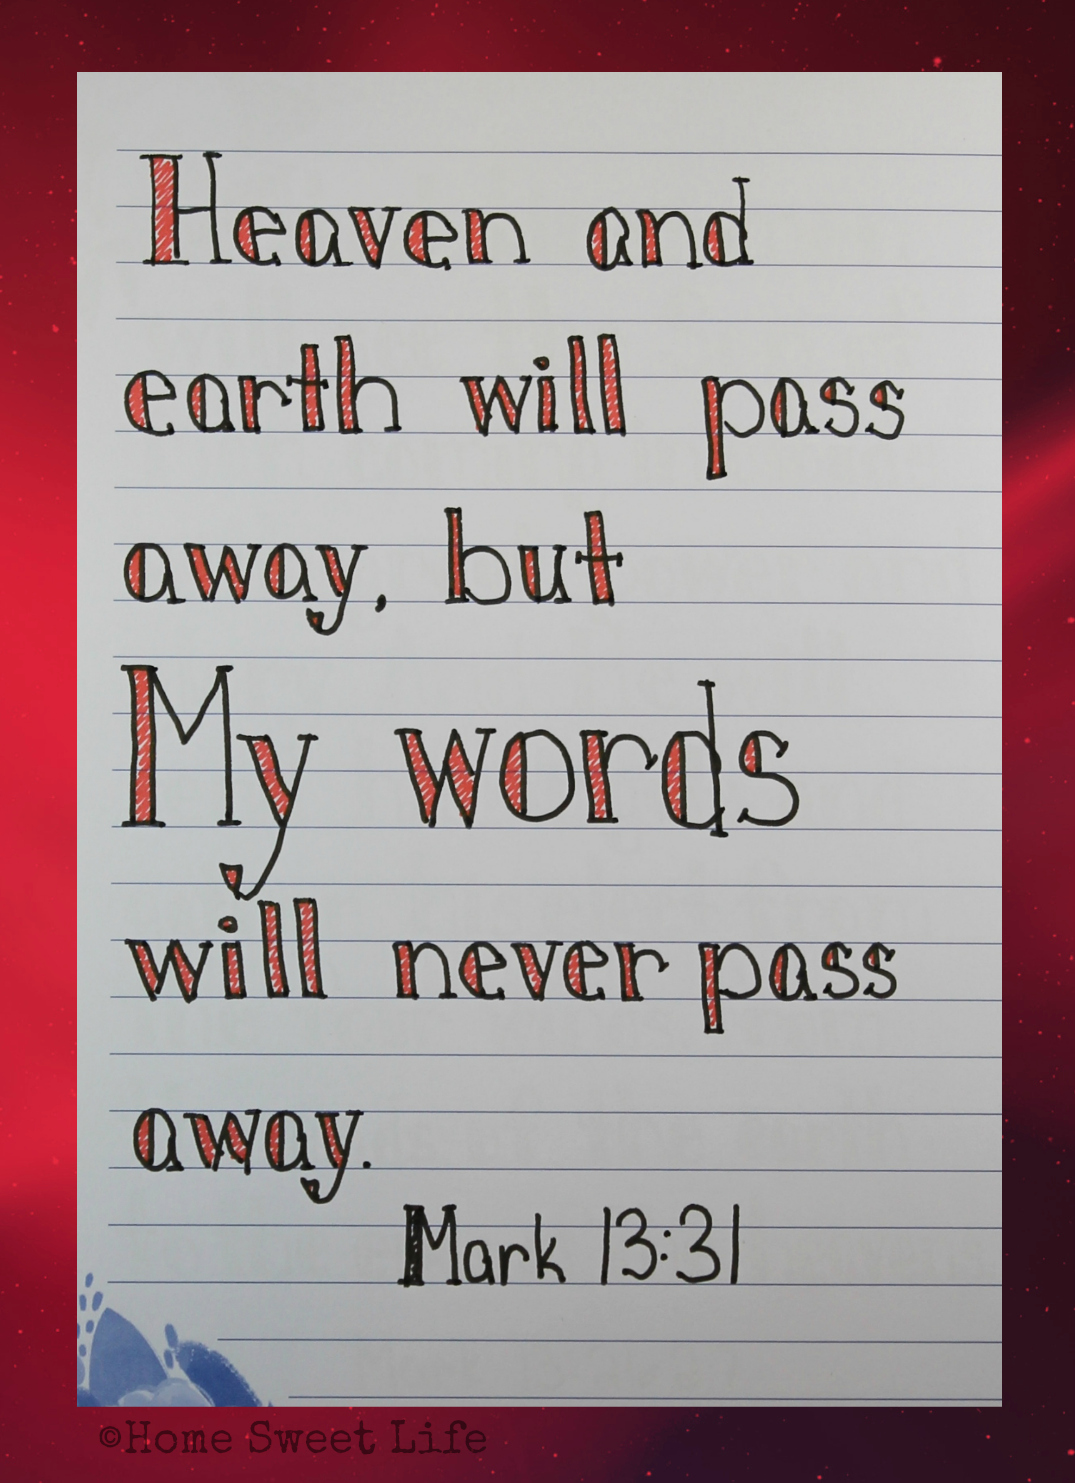 Heaven and
earth will pass
away, but
My words
will never pass
away.
Mark 13:31
©Home Sweet Life